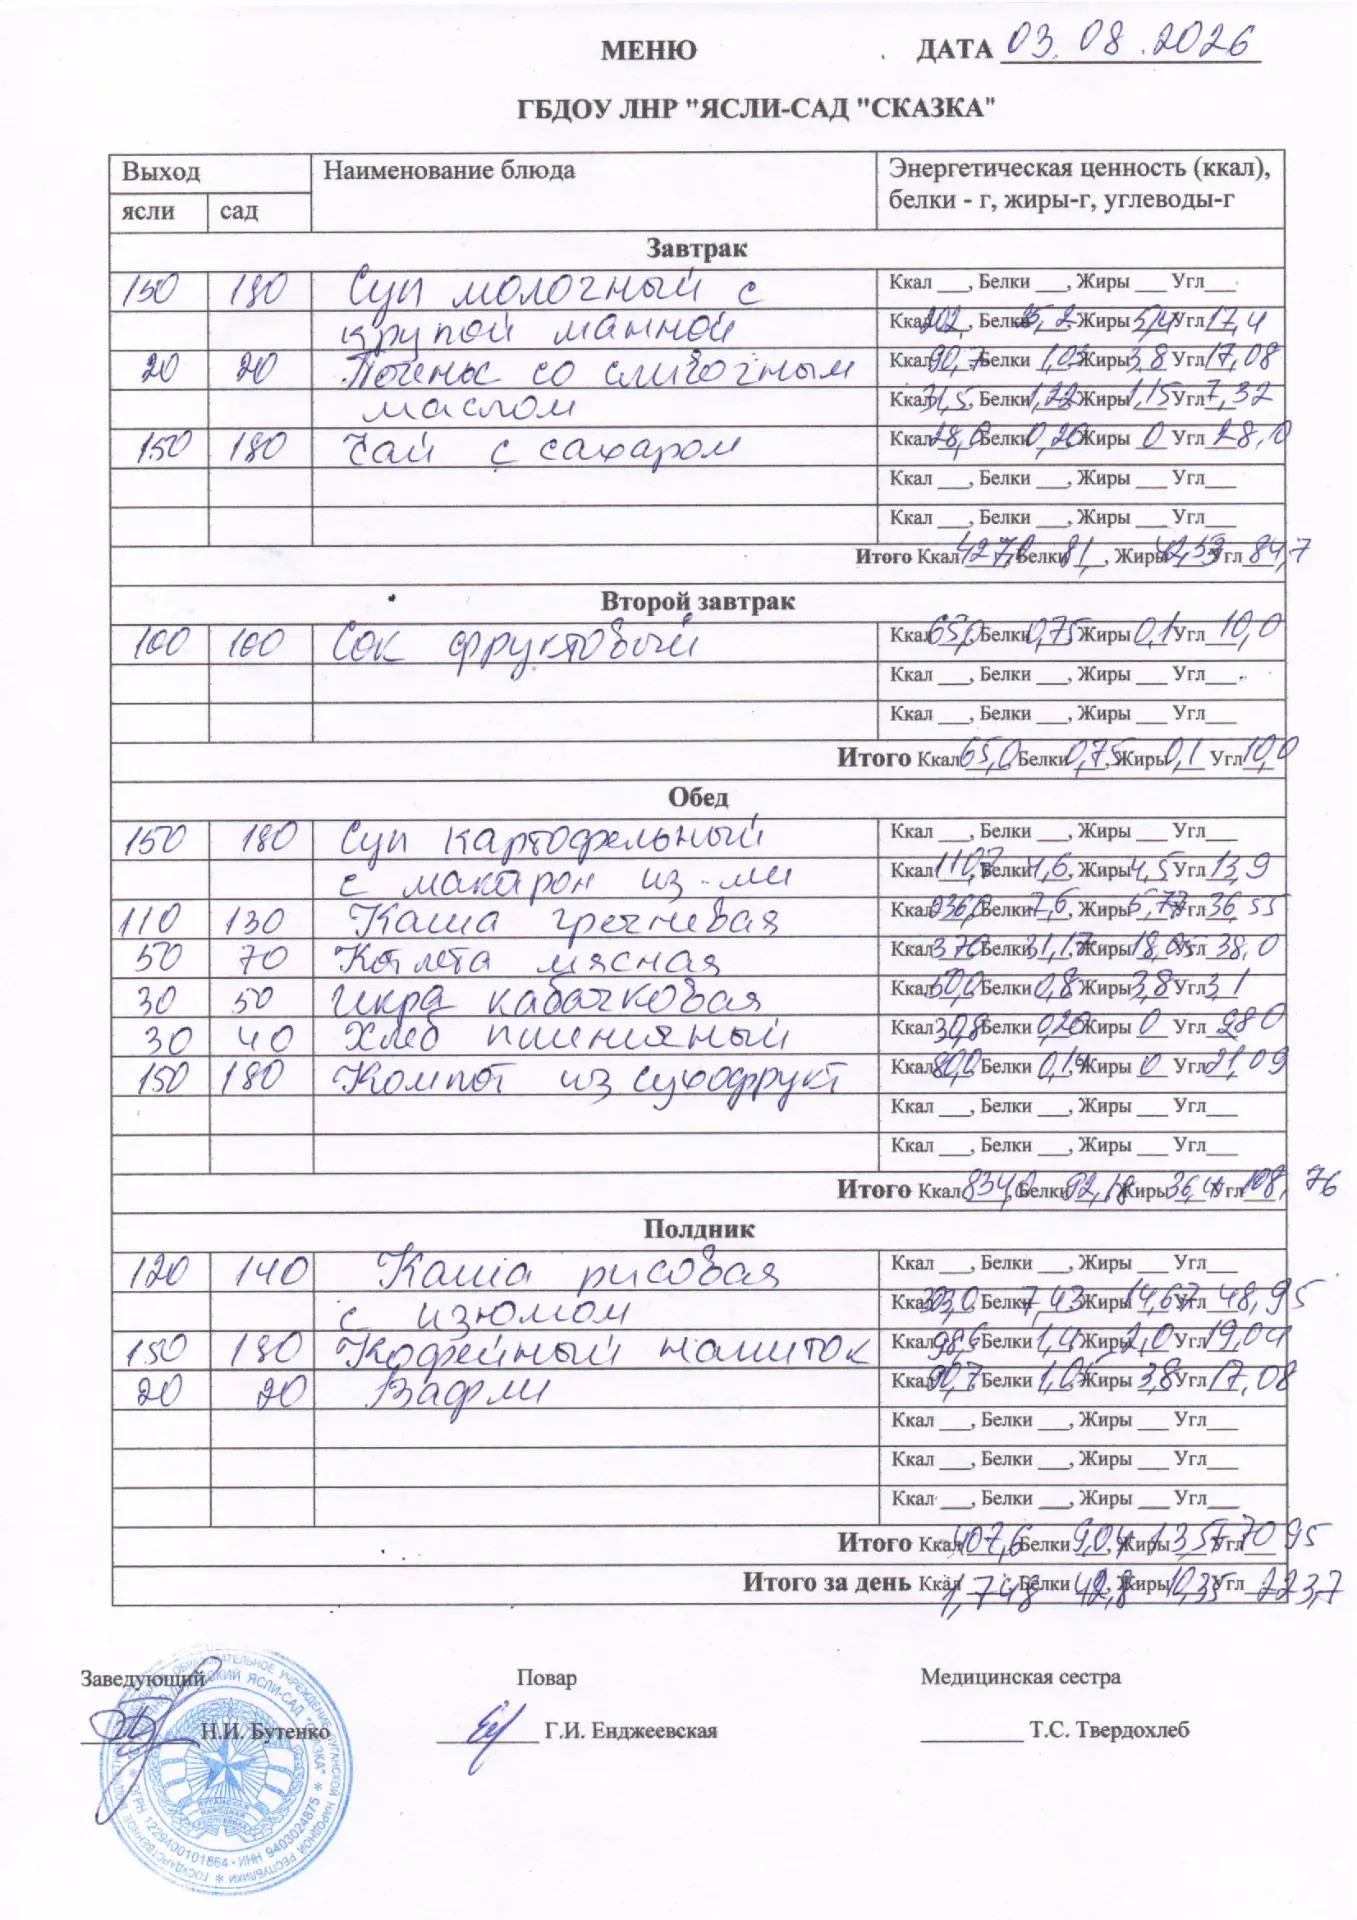 МЕНЮ ДАТА 03.08.2026
ГБДОУ ЛНР "ЯСЛИ-САД "СКАЗКА"
Выход Наименование блюда Энергетическая ценность (ккал),
ясли сад белки - г, жиры-г, углеводы-г
Завтрак
150 180 Суп молочный с Ккал ___, Белки ___, Жиры ___ Угл___
крупой манной Ккал 202, Белки 5,2 Жиры 5,4 Угл 17,4
20 20 Печенье со сливочным Ккал 90,7 Белки 1,05 Жиры 3,8 Угл 17,08
маслом Ккал 31,5, Белки 1,22 Жиры 1,15 Угл 7,32
150 180 Чай с сахаром Ккал 28,0 Белки 0,20 Жиры 0 Угл 28,0
Ккал ___, Белки ___, Жиры ___ Угл___
Ккал ___, Белки ___, Жиры ___ Угл___
Итого Ккал 427,0, Белки 81, Жиры 42,59 Угл 84,7
Второй завтрак
100 100 Сок фруктовый Ккал 65,0 Белки 0,75 Жиры 0,1 Угл 10,0
Ккал ___, Белки ___, Жиры ___ Угл___
Ккал ___, Белки ___, Жиры ___ Угл___
Итого Ккал 65,0, Белки 0,75, Жиры 0,1 Угл 10,0
Обед
150 180 Суп картофельный Ккал ___, Белки ___, Жиры ___ Угл___
с макарон из-ми Ккал 110,7, Белки 4,6, Жиры 4,5 Угл 13,9
110 130 Каша гречневая Ккал 236,0 Белки 7,6, Жиры 6,77 Угл 36,55
50 70 Котлета мясная Ккал 370 Белки 31,17 Жиры 18,05 Угл 38,0
30 50 Икра кабачковая Ккал 50,0 Белки 0,8 Жиры 3,8 Угл 3,1
30 40 Хлеб пшеничный Ккал 30,8 Белки 0,20 Жиры 0 Угл 28,0
150 180 Компот из сухофрукт Ккал 80,0 Белки 0,14 Жиры 0 Угл 21,09
Ккал ___, Белки ___, Жиры ___ Угл___
Ккал ___, Белки ___, Жиры ___ Угл___
Итого Ккал 834,0 Белки 92,18 Жиры 36,4 Угл 108,76
Полдник
120 140 Каша рисовая Ккал ___, Белки ___, Жиры ___ Угл___
с изюмом Ккал 303,0, Белки 7,43 Жиры 14,67 Угл 48,95
150 180 Кофейный напиток Ккал 98,6 Белки 1,4 Жиры 2,0 Угл 19,04
20 20 Вафли Ккал 90,7 Белки 1,05 Жиры 3,8 Угл 17,08
Ккал ___, Белки ___, Жиры ___ Угл___
Ккал ___, Белки ___, Жиры ___ Угл___
Ккал ___, Белки ___, Жиры ___ Угл___
Итого Ккал 407,6 Белки 9,04, Жиры 13,57 Угл 70 95
Итого за день Ккал 1,748 Белки 42,8, Жиры 10,35 Угл 223,7
Заведующий Повар Медицинская сестра
Н.И. Бутенко Г.И. Енджеевская Т.С. Твердохлеб
ЛУГАНСКАЯ
НАРОДНАЯ
РЕСПУБЛИКА
ОГРН 1229400101864 * ИНН 9403024875